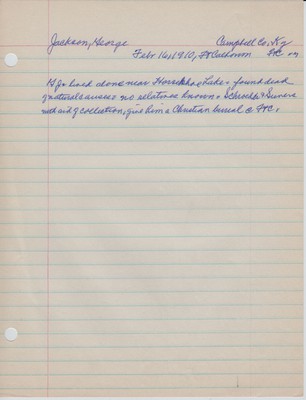 Jackson, George Campbell Co, Ky
Febr 16, 1910, Ft Calhoun FtC
G J. lived alone near Horseshoe Lake. found dead
of natural causes no relatives known.
with aid of collection, give him a Christian burial @ FtC.